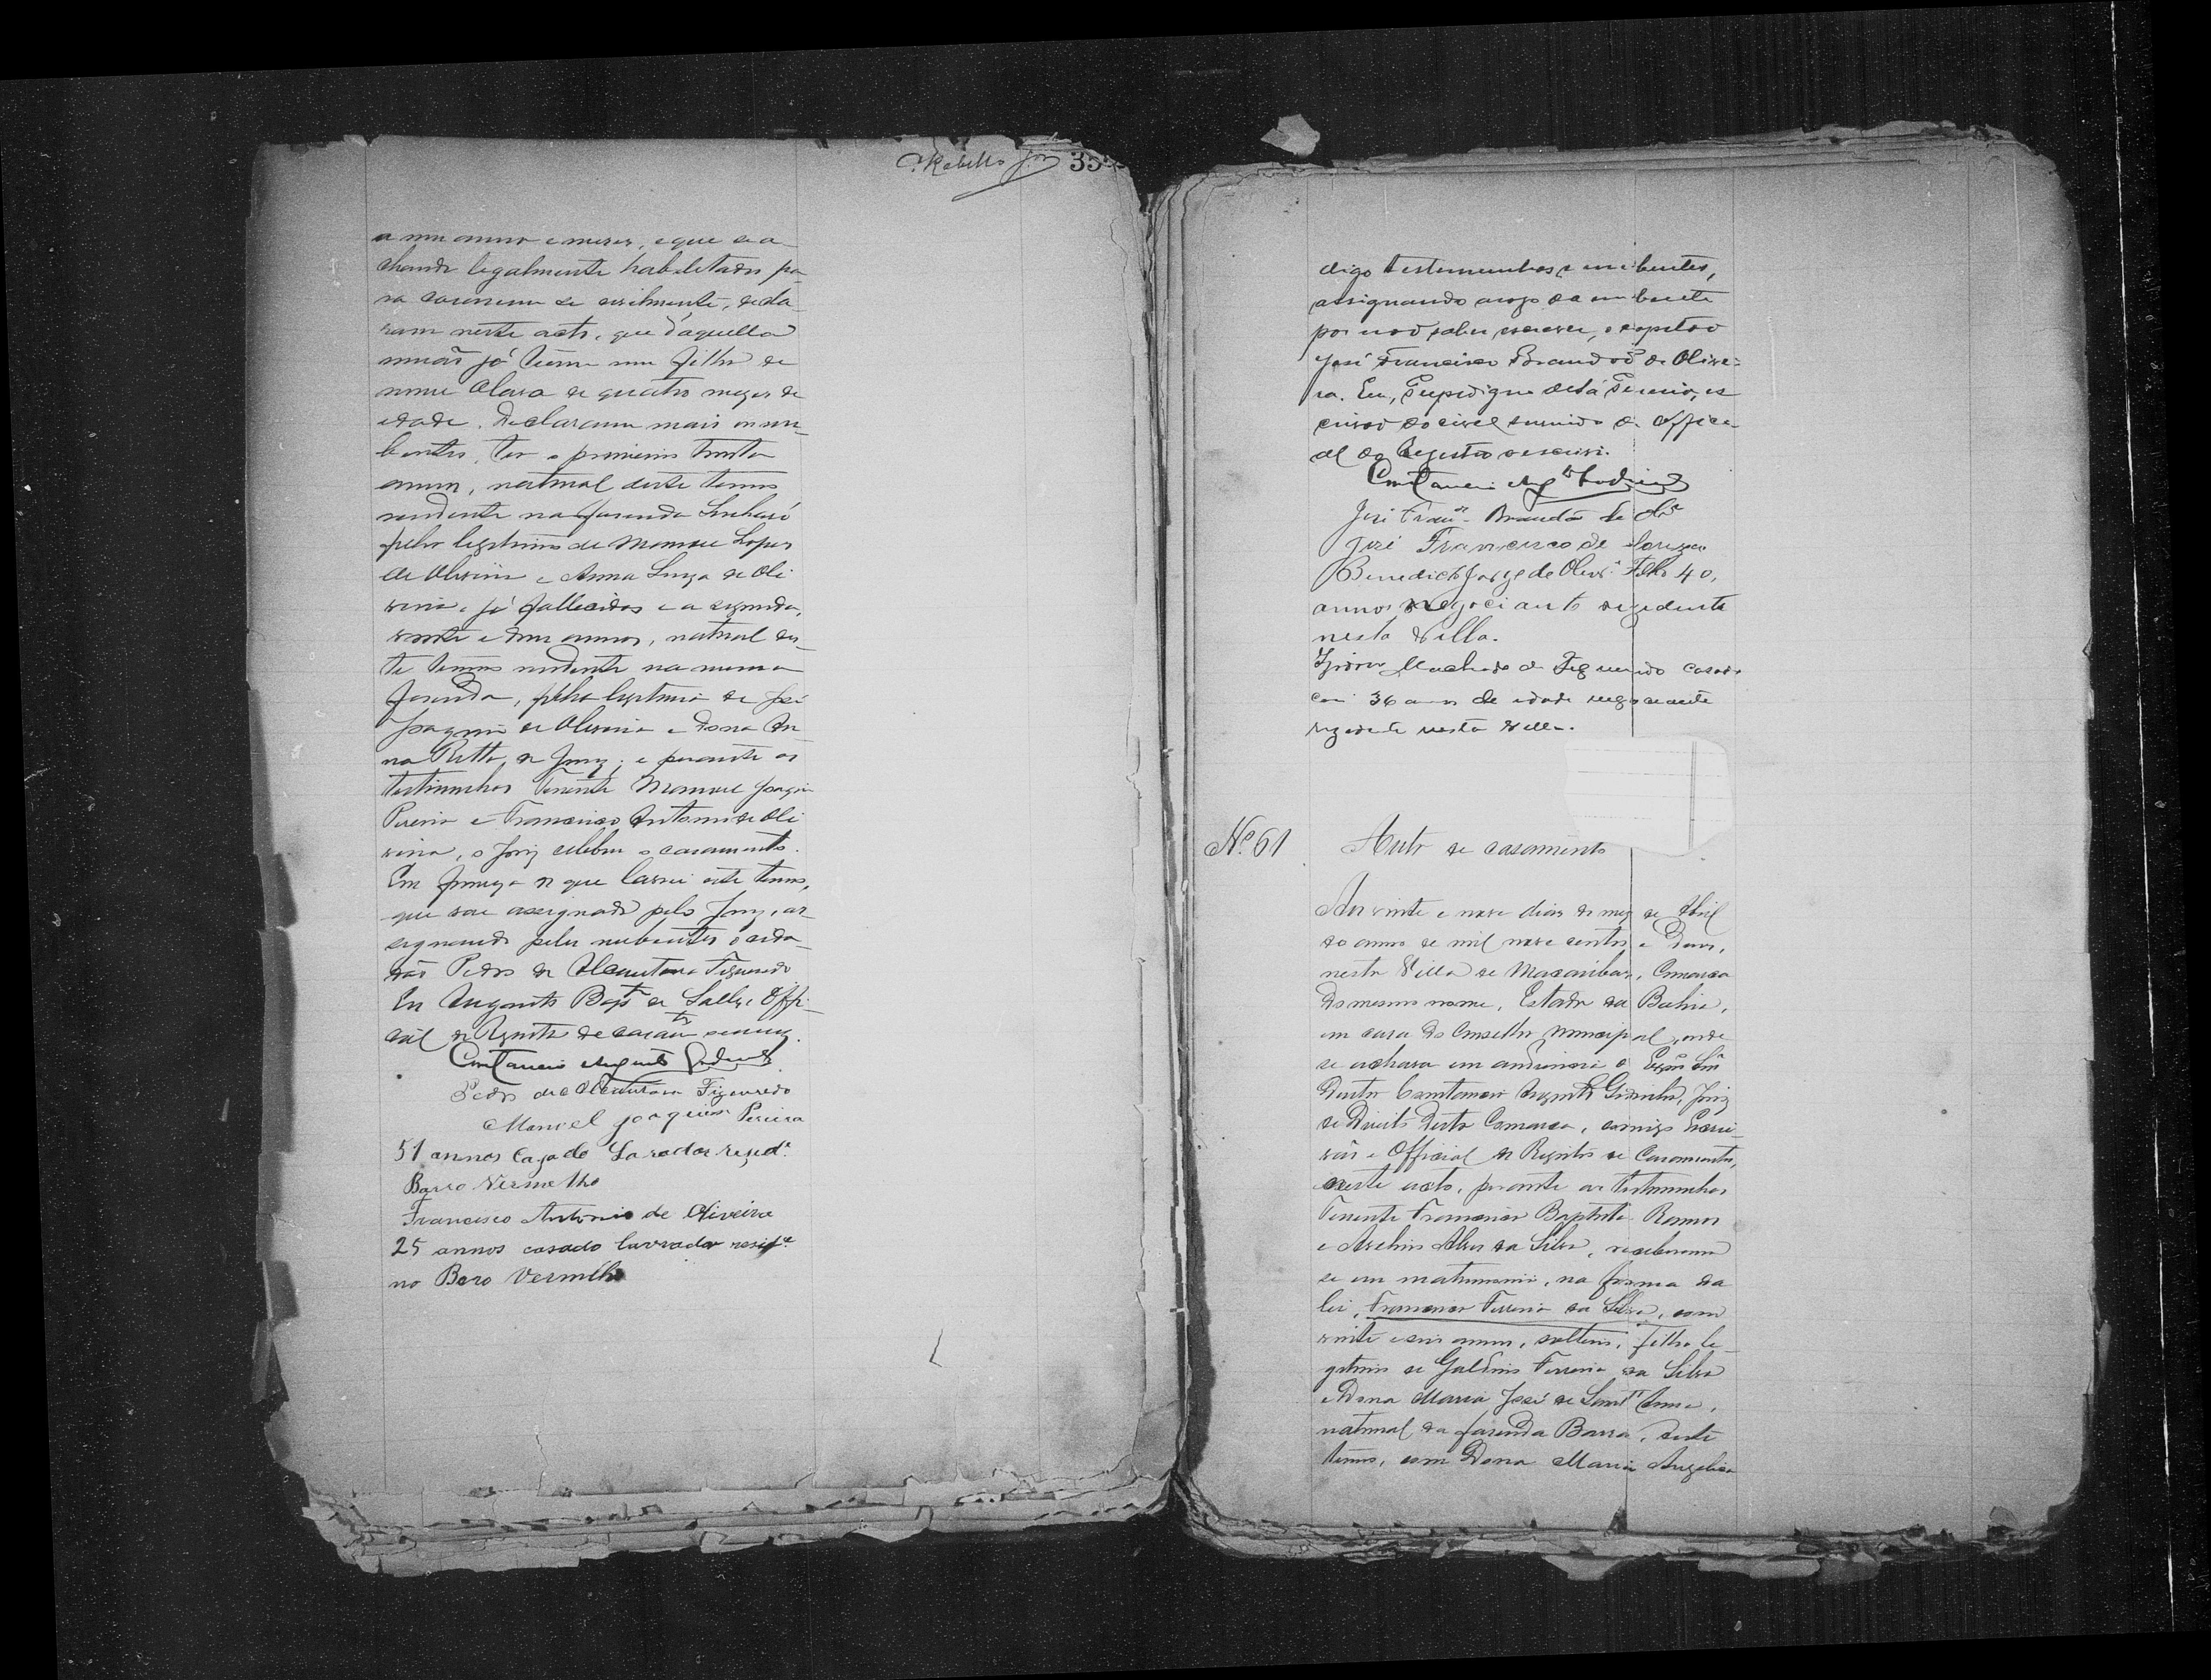 Rabello Jor 35
a um anno e mezes, e que se a
chando legalmente habelitados pa
ra casarem se civilmente, decla
ram neste acto, que d'aquella
união já tem um filho de
nome Clara de quatro mezes de
edade. Declararam mais os nu
bentes, ter o primeiro trinta
annos, natural deste termo
residente na fazenda
filho legitimo de Manoel Lopes
de Oliveira e Anna Luiza de Oli
veira, já fallecidos e a segunda,
vinte e um annos, natural des
te termo residente na mesma
fazenda, filha legitima de José
Joaquim de Oliveira e Dona An
na Ritta de Jesuz; e perante as
testimunhas Tenente Manoel Joaquim
Pereira e Francisco Antonio de Oli
veira, o Juiz celebrou o casamento.
Em firmeza do que lavrei este termo,
que vae assignado pelo Juiz, as
signando pelos nubentes o cida
dão Pedro de Alcantara Figueredo
Eu Augusto Bapta de Salles, Offi
cial do Registro de casamtos escrevy.
Constancio Augusto Godinho
Pedro de Alcantara Figueredo
Manoel Joaquim Pereira
51 annos Cazado Lavrador rezide
Barro Vermelho
Francisco Antonio de Oliveira
25 annos casado lavrador reside
no Baro Vermelho
digo testemunhas e nubentes,
assignando arogo da nubente
por não saber escrever, o capitão
José Francisco Brandão de Olivei=
ra. Eu, Pereira, es
crivão do civel servindo de Offici
al do Registro o escrevi.
Constancio Augto Godinho
José Francco Brandão de Olra
José Francisco de
Benedicto Jorge de Olivra Filho 40,
annos negociante rezidente
nesta Villa.
Machado de Figueredo casado
com 36 annos de idade negociante
rezidente nesta Villa.
No. 61 Auto de casamento
Aos vinte e nove dias do mez de Abril
do anno de mil nove centos e dous,
nesta Villa de Macaúbas, Comarca
do mesmo nome, Estado da Bahia,
em casa do Conselho Municipal, onde
se achava em audiencia o Exmo Snr
Doutor Constancio Augusto Godinho, Juiz
de Direito desta Comarca, comigo Escri
vão e Official do Registro de Casamentos,
neste acto, perante as testimunhas
Tenente Francisco Baptista Ramos
e Avelino Alves da Silva, receberam
se em matrimonio, na forma da
lei, Francisco Ferreira da Silva, com
vinte e seis annos, solteiro, filho le
gitimo de Galdino Ferreira da Silva
e Dona Maria José de Sant'Anna,
natural da fazenda Barra, deste
termo, com Dona Maria Angelica